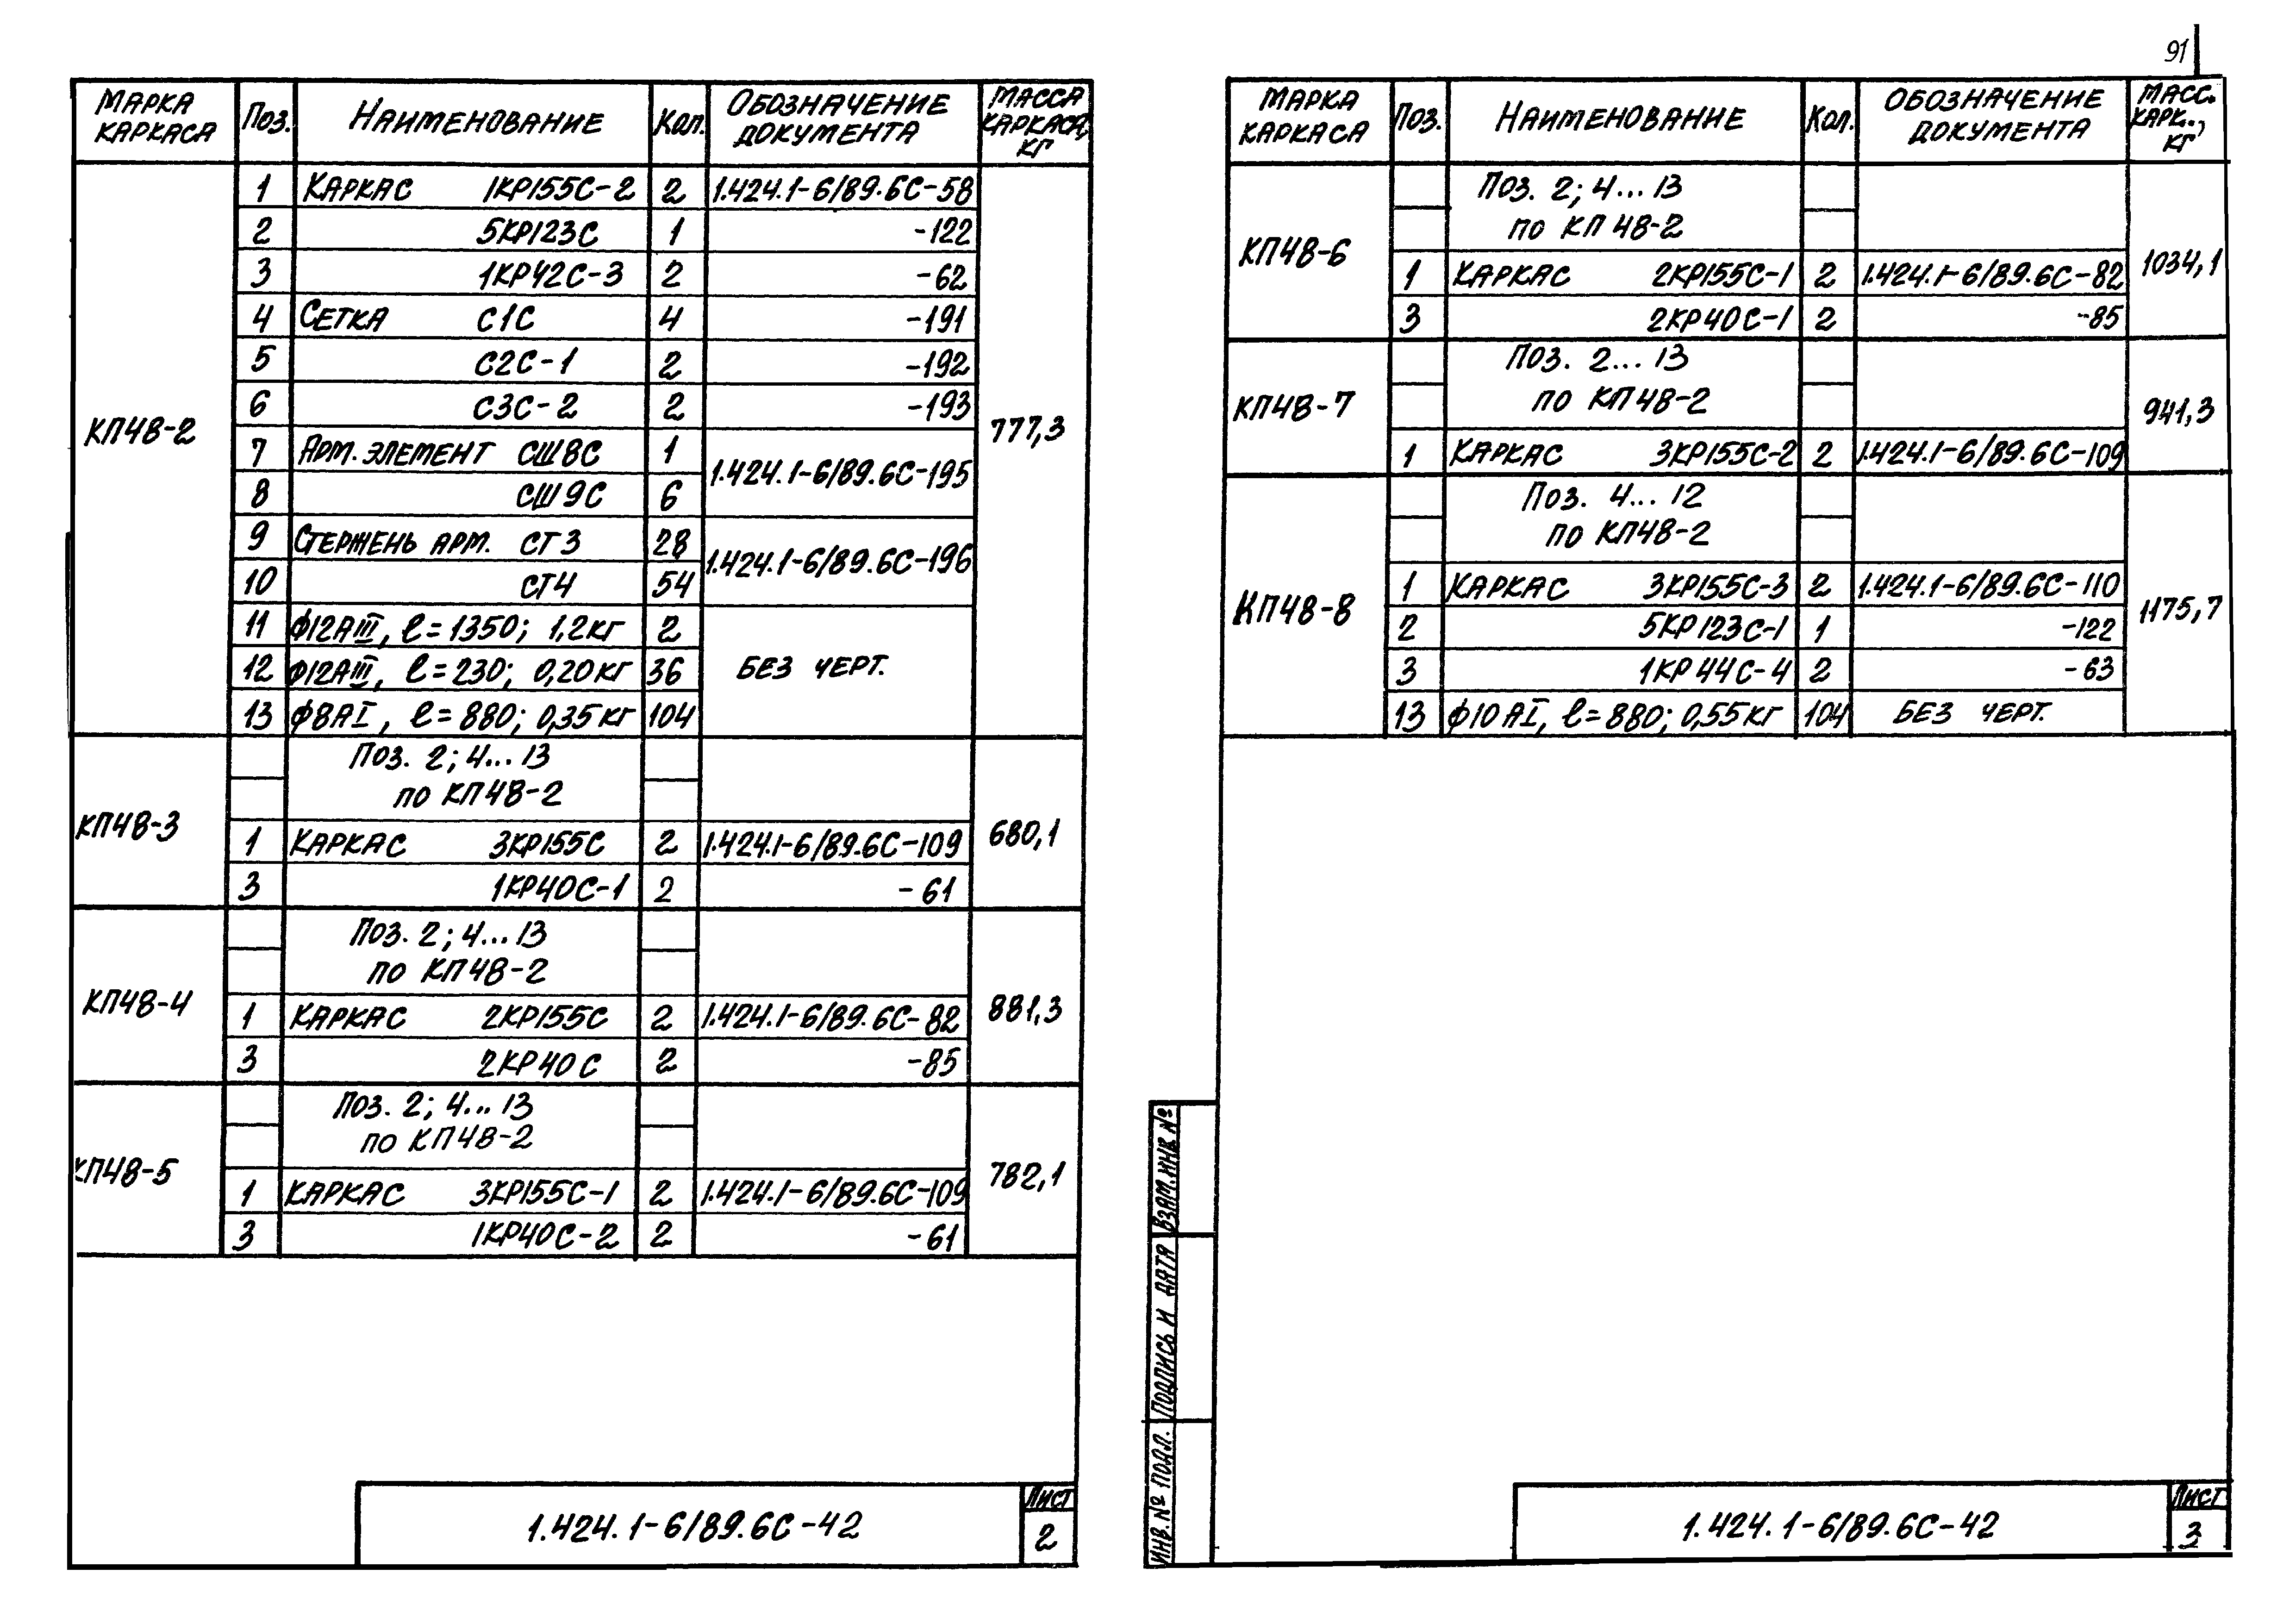 91
МАРКА КАРКАСА Поз. НАИМЕНОВАНИЕ Кол. ОБОЗНАЧЕНИЕ ДОКУМЕНТА МАССА КАРКАСА, КГ
КП48-2 777,3
1 КАРКАС 1КР155С-2 2 1.424.1-6/89.6С-58
2 5КР123С 1 -122
3 1КР42С-3 2 -62
4 СЕТКА С1С 4 -191
5 С2С-1 2 -192
6 С3С-2 2 -193
7 АРМ. ЭЛЕМЕНТ СШ8С 1 1.424.1-6/89.6С-195
8 СШ9С 6
9 СТЕРЖЕНЬ АРМ. СТ3 28 1.424.1-6/89.6С-196
10 СТ4 54
11 ф12АIII, ℓ=1350; 1,2кг 2 БЕЗ ЧЕРТ.
12 ф12АIII, ℓ=230; 0,20кг 36
13 ф8АI, ℓ=880; 0,35кг 104
КП48-3 680,1
Поз. 2; 4...13
по КП48-2
1 КАРКАС 3КР155С 2 1.424.1-6/89.6С-109
3 1КР40С-1 2 -61
КП48-4 881,3
Поз. 2; 4...13
по КП48-2
1 КАРКАС 2КР155С 2 1.424.1-6/89.6С-82
3 2КР40С 2 -85
КП48-5 782,1
Поз. 2; 4...13
по КП48-2
1 КАРКАС 3КР155С-1 2 1.424.1-6/89.6С-109
3 1КР40С-2 2 -61
1.424.1-6/89.6С-42
Лист
2
МАРКА КАРКАСА Поз. НАИМЕНОВАНИЕ Кол. ОБОЗНАЧЕНИЕ ДОКУМЕНТА МАСС. КАРК., КГ
КП48-6 1034,1
Поз. 2; 4...13
по КП 48-2
1 КАРКАС 2КР155С-1 2 1.424.1-6/89.6С-82
3 2КР40С-1 2 -85
КП48-7 941,3
Поз. 2...13
по КП48-2
1 КАРКАС 3КР155С-2 2 1.424.1-6/89.6С-109
КП48-8 1175,7
Поз. 4...12
по КП48-2
1 КАРКАС 3КР155С-3 2 1.424.1-6/89.6С-110
2 5КР123С-1 1 -122
3 1КР44С-4 2 -63
13 ф10АI, ℓ=880; 0,55кг 104 БЕЗ ЧЕРТ.
ВЗАМ.ИНВ №
ПОДПИСЬ И ДАТА
ИНВ.№ ПОДЛ.
1.424.1-6/89.6С-42
Лист
3